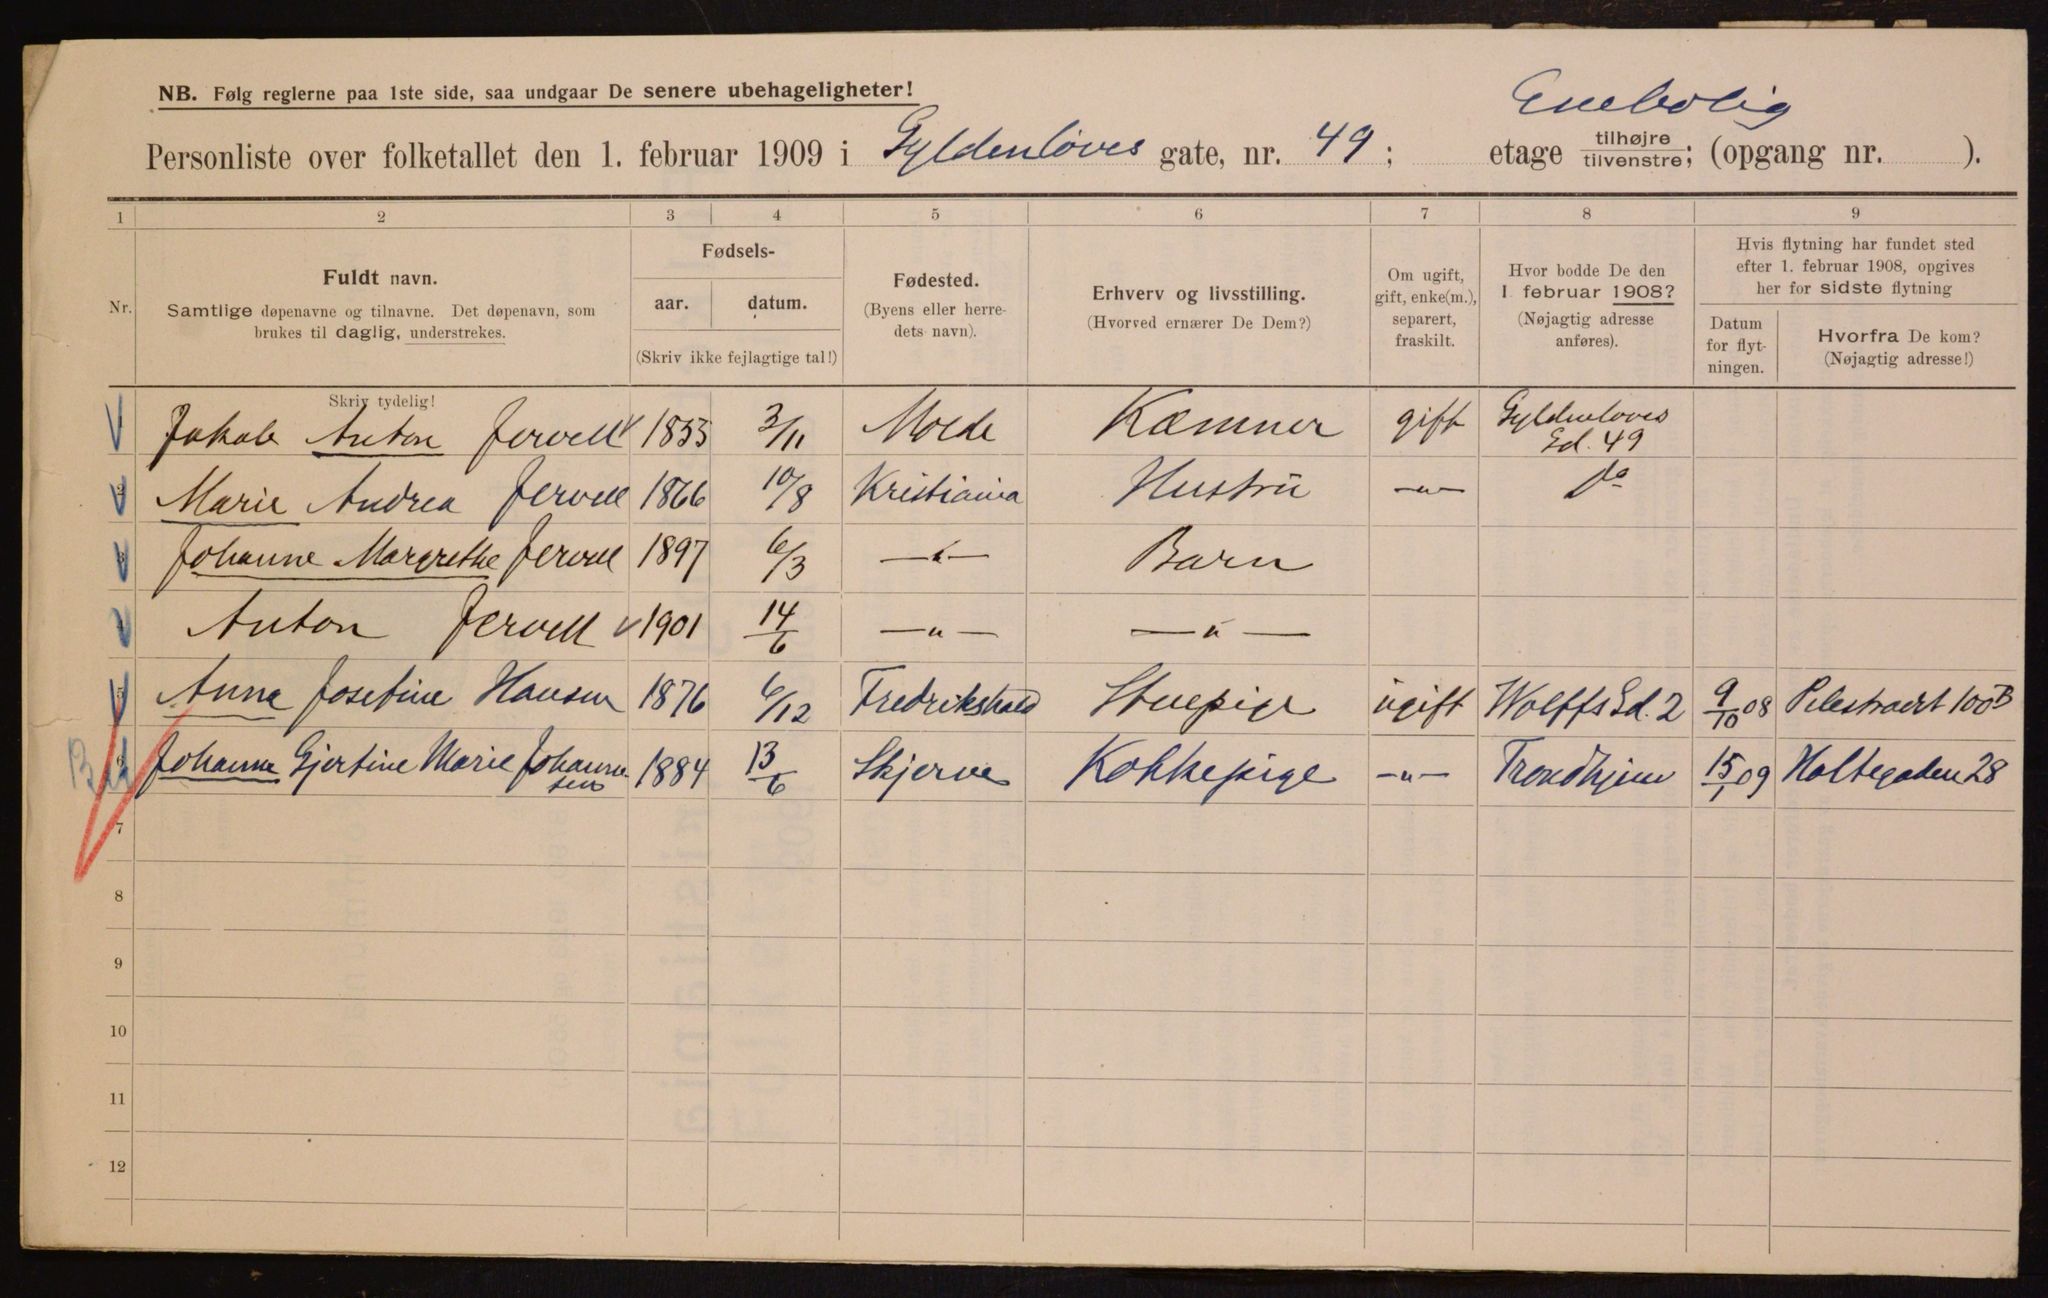 Enebolig
NB. Følg reglerne paa 1ste side, saa undgaar De senere ubehageligheter!
Personliste over folketallet den 1. februar 1909 i Gyldenløves gate, nr. 49; etage tilhøjre/tilvenstre; (opgang nr. ).
1 2 3 4 5 6 7 8 9
Nr. Fuldt navn. Samtlige døpenavne og tilnavne. Det døpenavn, som brukes til daglig, understrekes.
Fødsels- aar. datum. (Skriv ikke fejlagtige tal!)
Fødested. (Byens eller herredets navn).
Erhverv og livsstilling. (Hvorved ernærer De Dem?)
Om ugift, gift, enke(m.), separert, fraskilt.
Hvor bodde De den 1 februar 1908? (Nøjagtig adresse anføres).
Hvis flytning har fundet sted efter 1. februar 1908, opgives her for sidste flytning
Datum for flytningen. Hvorfra De kom? (Nøjagtig adresse!)
Skriv tydelig!
Jakob Anton Jervell 1853 3/11 Molde Kæmner gift Gyldenløves Gd. 49
2 Marie Andrea Jervell 1866 10/8 Kristiania Hustru —"— Do
3 Johanne Margrethe Jervell 1897 6/3 —"— Barn
4 Anton Jervell 1901 14/6 —"— —"—
5 Anna Josefine Hansen 1876 6/12 Fredrikshald Stuepige ugift Wolffs Gd. 2 9/10 08 Pilestrædet 100B
6 Johanne Gjertine Marie Johannesen 1884 13/6 Skjerve Kokkepige —"— Trondhjem 15/1 09 Holtegaden 28
7
8
9
10
11
12